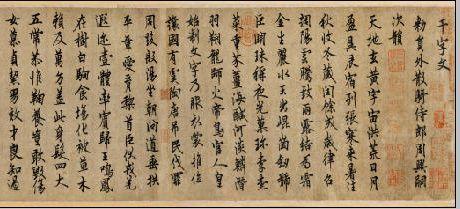 千字文
勅員外散騎侍郎周興嗣
次韻
天地玄黃宇宙洪荒日月
盈昃辰宿列張寒來暑往
秋收冬藏閏餘成歲律呂
調陽雲騰致雨露結為霜
金生麗水玉出崐崗劍號
巨闕珠稱夜光菓珍李柰
菜重芥薑海鹹河淡鱗潛
羽翔龍師火帝鳥官人皇
始制文字乃服衣裳推位
讓國有虞陶唐吊民伐罪
周發殷湯坐朝問道垂拱
平章愛育黎首臣伏戎羌
遐邇壹體率賓歸王鳴鳳
在樹白駒食場化被草木
賴及萬方盖此身髮四大
五常恭惟鞠養豈敢毀傷
女慕貞絜男效才良知過